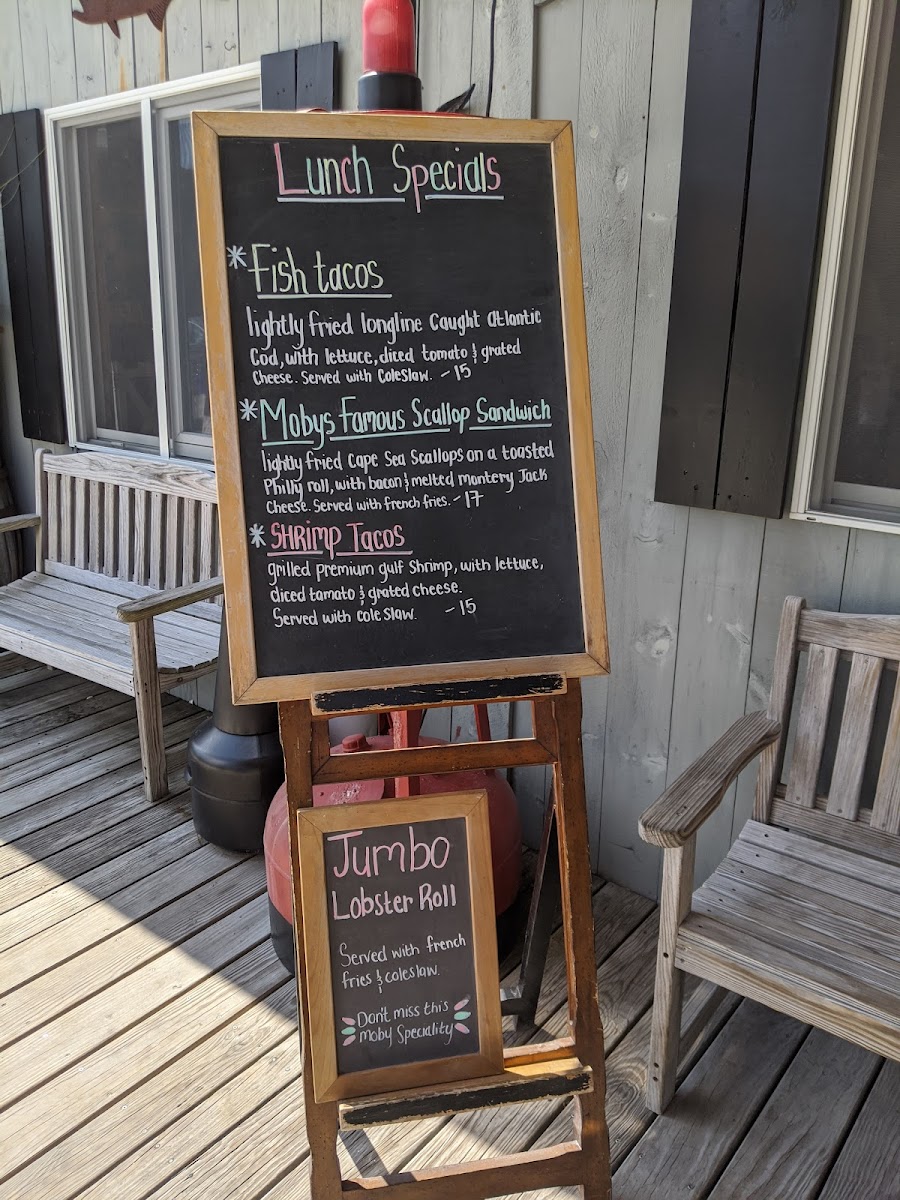 Lunch Specials
*Fish tacos
lightly fried longline Caught Atlantic
Cod, with lettuce, diced tomato & grated
Cheese. Served with Coleslaw. - 15
*Mobys Famous Scallop Sandwich
lightly fried Cape Sea Scallops on a toasted
Philly roll, with bacon & melted montery Jack
Cheese. Served with french fries. - 17
*SHRimp Tacos
grilled premium gulf Shrimp, with lettuce,
diced tamato & grated cheese.
Served with cole slaw. - 15
Jumbo
Lobster Roll
Served with french
fries & coleslaw.
Don't miss this
moby Speciality